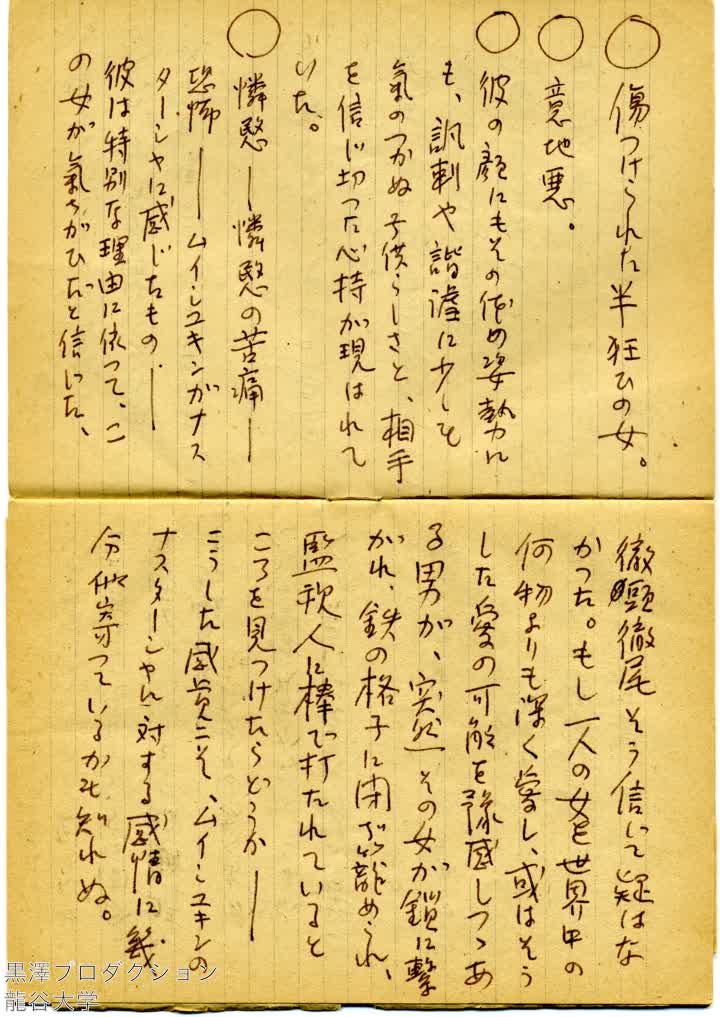 ○ 傷つけられた半狂ひの女。
○ 意地悪。
○ 彼の顔にもその他の姿勢に
も、諷刺や諧謔に少しも
氣のつかぬ子供らしさと、相手
を信じ切った心持が現はれて
いた。
○ 憐愍―憐愍の苦痛―
恐怖――ムイシユキンがナス
ターシャに感じたもの――
彼は特別な理由に依つて、こ
の女が氣ちがひだと信じた、
徹頭徹尾そう信じて疑はな
かつた。もし一人の女を世界中の
何物よりも深く愛し、或はそう
した愛の可能を豫感しつゝあ
る男が、突然その女が鎖に繋
がれ、鉄の格子に閉ぢ籠められ、
監視人に棒で打たれていると
ころを見つけたらどうか――
こうした感覚こそ、ムイシユキンの
ナスターシャに対する感情に幾
分似寄つているかも知れぬ。
黒澤プロダクション
龍谷大学